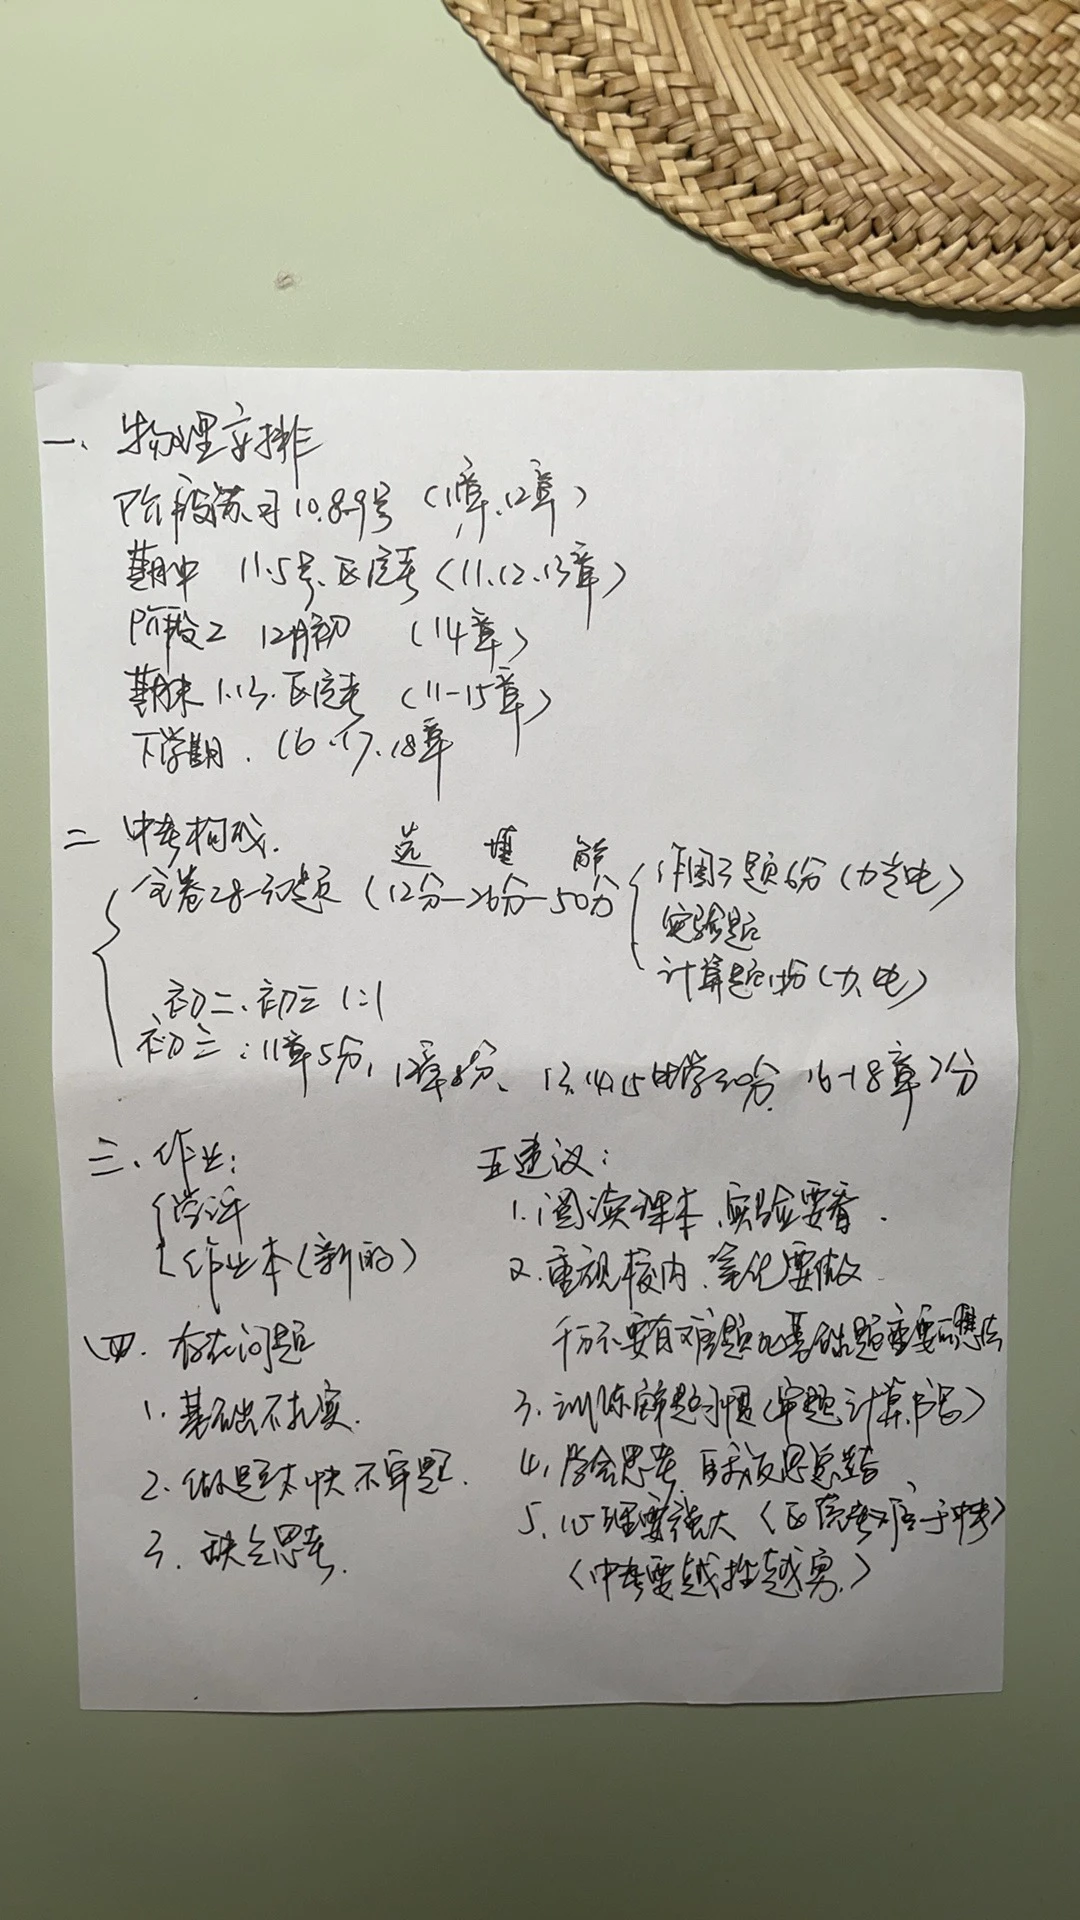 一、物理安排
阶段练习10.8-9号（11章、12章）
期中 11.5号、区统考（11、12、13章）
阶段2 12月初 （14章）
期末 1.13.区统考 （11-15章）
下学期. 16、17、18章
二 中考构成.
选 填 解
全卷28-30题 （12分-26分-50分
作图3题6分（力光电）
实验题
计算题 （力、电）
初二、初三 1:1
初三：11章5分，12章8分、13、14、15电学30分 16-18章7分
三、作业：
学评
作业本（新的）
四、存在问题
1、基础不扎实.
2、做题太快不审题.
3、缺乏思考.
五建议：
1、阅读课本、实验要看.
2、重视校内、笔化要做
千万不要有难题比基础题重要的想法
3、训练解题习惯（审题、计算、书写）
4、学会思考、自我反思总结
5、心理要强大（区统考难于中考）
（中考要越挫越勇.）